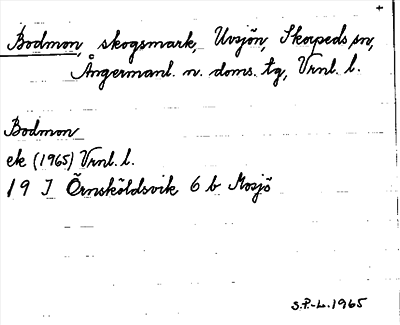 +
Bodmon, skogsmark, Uvsjön, Skorpeds sn,
Ångermanl. n. doms. tg, Vrnl. l.
Bodmon
ek (1965) Vrnl. l.
19 I Örnsköldsvik 6 b Mosjö
S.P.-L. 1965